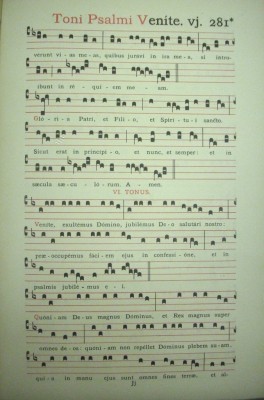 Toni Psalmi Venite. vj. 281*
verunt vi-as me-as, quibus juravi in ira me-a, si intro-
ibunt in re- qui-em me- am.
Glo- ri-a Patri, et Fili-o, et Spiri-tu-i sancto.
Sicut erat in princípi-o, et nunc, et semper: et in
sæcula sæ-cu- ló-rum. A- men.
VI. TONUS.
Venite, exultemus Domino, jubilemus De-o salutari nostro:
præ-occupemus faci-em ejus in confessi-one, et in
psalmis jubile-mus e- i.
Quoni-am De-us magnus Dominus, et Rex magnus super
omnes de-os: quoni-am non repellet Dominus plebem su-am,
qui-a in manu ejus sunt omnes fines terræ, et al-